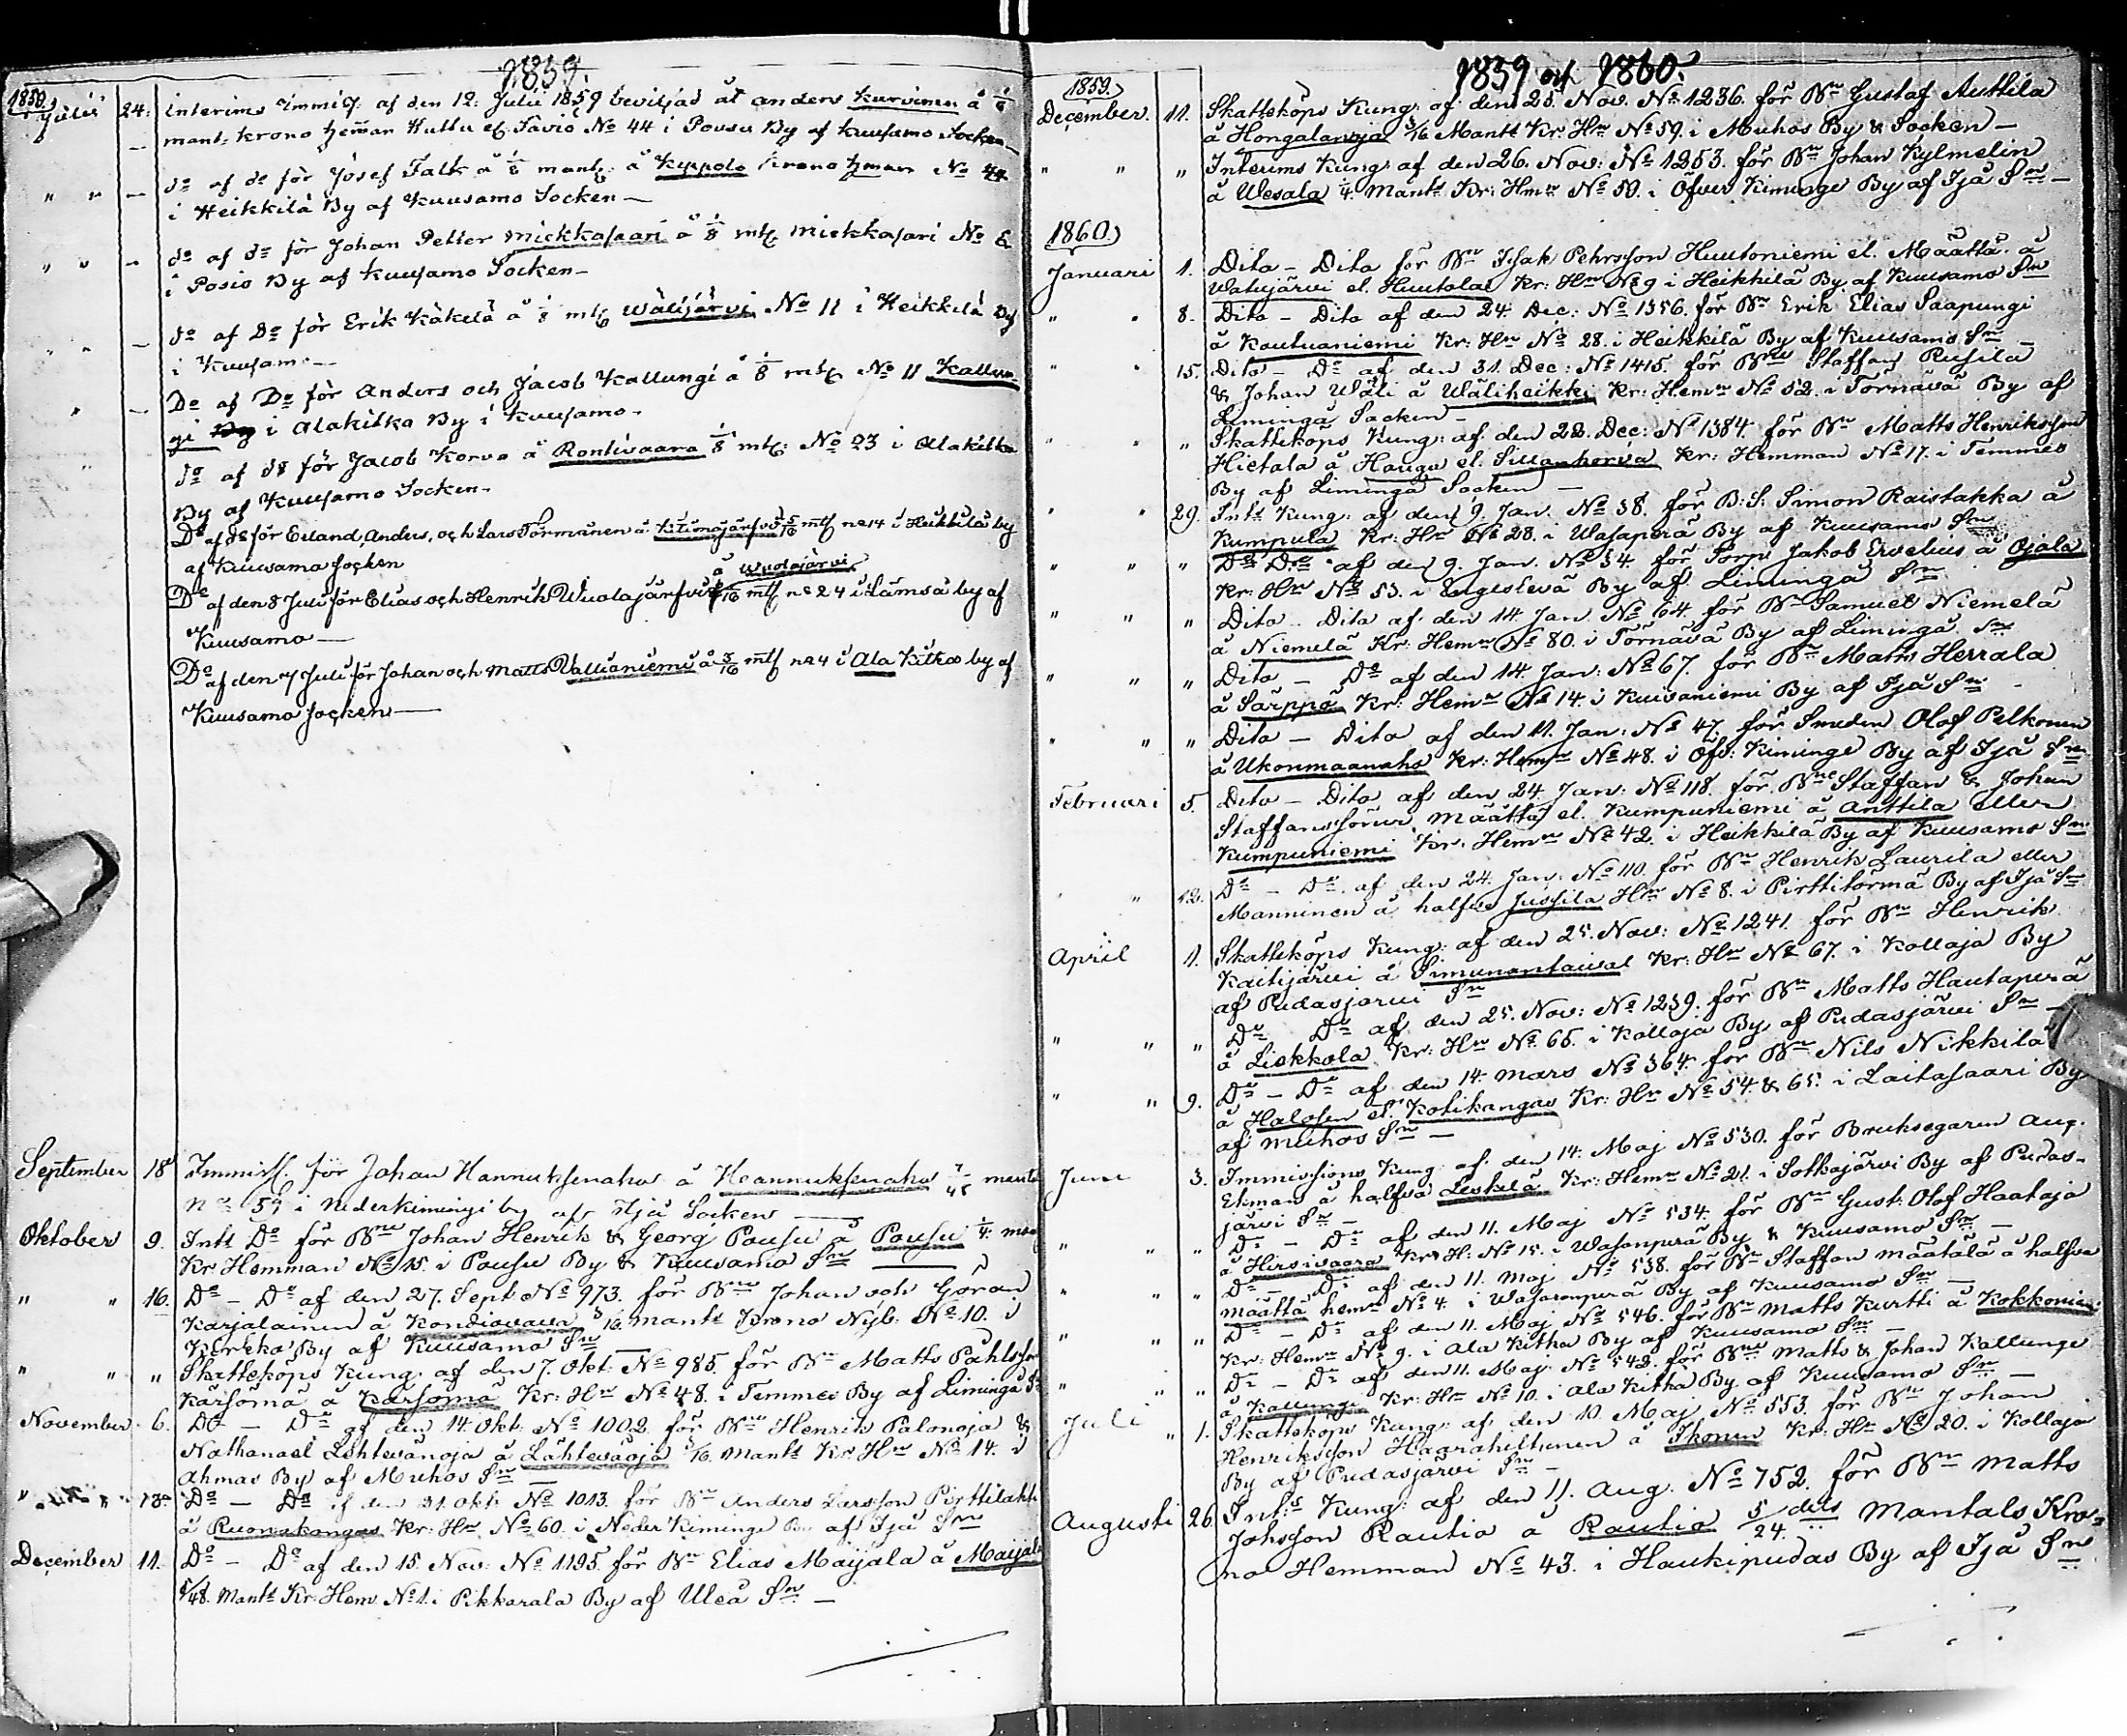 1859.
1859. Julii 24. Interims Immiss. af den 12. Julii 1859 beviljad åt Anders Kurvinen å 1/8
mant. krono heman Huttu el. Savio No 44 i Pousu By af Kuusamo Socken
" " — do af do för Josef Falk å 1/8 mant. å Keppola krono hman No 44
i Heikkilä By af Kuusamo Socken —
" " — do af do för Johan Petter Mickkasaari å 1/8 mtl. Mickkasari No 6
i Posio By af Kuusamo Socken —
" " — do af Do för Erik Käkelä å 1/8 mtl. Wälijärvi No 11 i Heikkilä By
i Kuusamo —
" — Do af Do för Anders och Jacob Kallungi å 1/8 mtl. No 11 Kallun-
gi i Alakitka By i Kuusamo —
" do af do för Jacob Korva å Rontivaara 1/8 mtl. No 23 i Alakitka
By af Kuusamo Socken —
Do af do för Erland, Anders, och Lars Törmänen å Kitronojärfvi 5/16 mtl no 14 i Heikkilä by
af Kuusamo Socken
å Wuolajärvi
Do af den 8 Juli för Elias och Henrik Wuolajärfvi 5/16 mtl no 24 i Lämsä by af
Kuusamo —
Do af den 7 Juli för Johan och Matts Vallioniemi å 3/16 mtl no 4 i Ala Kitka by af
Kuusamo Socken —
September 18 Immiss. för Johan Hannuksenaho å Hannuksenaho 7/48 mantl
No 59 i Nederkiminge by af Ijå Socken —
Oktober 9. Intr Do för Bne Johan Henrik & Georg Pousu å Pousu 1/4 man
Kr Hemman No 15. i Pousu By & Kuusamo Sn —
" " 16. Do — Do af den 27. Sept No 973. för Bne Johan och Göran
Karjalainen å Kondiovaara 3/16. mantl Krono Nyb. No 10. i
Kurkka By af Kuusamo Sn —
" " " Skatteköps Kung. af den 7. Okt. No 985. för Bn Matts Påhlsson
Kärsämä å Karsämä Kr. Hn No 48. i Temmes By af Liminga Sn
November 6. Do — Do af den 14. Okt. No 1002. för Bne Henrik Palonoja &
Nathanael Lehtevänoja å Lähteväoja 5/16. Mantl Kr. Hn No 14. i
Ahmas By af Muhos Sn —
" " 13. Do — Do af den 31. Okt. No 1013. för Bn Anders Larsson Pirttilaht
å Ruonakangas Kr. Hn No 60. i Neder Kiminge By af Ijå Sn
December 11. Do — Do af den 15. Nov. No 1195. för Bn Elias Maijala å Maijala
5/48. Mantl Kr: Hem. No 1. i Pikkarala By af Uleå Sn —
1859 och 1860.
1859.
December. 11. Skatteköps Kung. af den 25. Nov. No 1236. för Bn Gustaf Anttila
å Hongalanoja 3/16 Mantl Kr. Hn No 59. i Muhos By & Socken —
" " " Interims Kung. af den 26. Nov: No 1253. för Bn Johan Kylmelin
å Wesala 1/4. Mantl Kr: Hmn No 50. i Öfver Kiminge By af Ijå Sn —
1860.
Januari 1. Dito — Dito för Bn Isak Pehrsson Huutoniemi el. Määttä å
Watujärvi el. Huutola Kr: Hn No 9 i Heikkilä By af Kuusamo Sn
" " 8. Dito — Dito af den 24 Dec: No 1356. för Bn Erik Elias Saapungi
å Koutuaniemi Kr: Hn No 28. i Heikkilä By af Kuusamo Sn —
" " 15. Dito — Do af den 31. Dec: No 1415. för Bne Staffan Rusila
& Johan Wäli å Wäliheikki Kr: Hemn No 52. i Törnävä By af
Liminga Socken —
" " " Skatteköps Kung: af den 22. Dec: No 1384. för Bn Matts Henriksson
Hietala å Hauga el. Sillankorva Kr: Hemman No 17. i Temmes
By af Liminga Socken —
" " 29. Intr Kung. af den 9. Jan. No 38. för B:S: Simon Raistakka å
Kumpula Kr: Hn No 28. i Wasaperä By af Kuusamo Sn
" " " Do Do af den 9. Jan. No 34 för Torp. Jakob Ervelius å Ojala
Kr: Hn No 53. i Engeslevä By af Liminga Sn
" " " Dito .. Dito af den 14. Jan No 64 för Bn Samuel Niemelä
å Niemelä Kr: Hemn No 80. i Törnävä By af Liminga Sn
" " " Dito — Do af den 14. Jan: No 67. för Bn Matts Herrala
å Särppä Kr: Hemn No 14. i Kuisaniemi By af Ijå Sn —
" " " Dito — Dito af den 11. Jan: No 47. för Smeden Olof Pelkonen
å Ukonmaanaho Kr: Hemn No 48. i Öfv: Kiminge By af Ijå Sn
Februari 5. Dito — Dito af den 24. Jan: No 118. för Bne Staffan & Johan
Staffanssöner Määttä el. Kumpuniemi å Anttila eller
Kumpuniemi Kr: Hemn No 42. i Heikkilä By af Kuusamo Sn
" " 12. Do — Do af den 24. Jan: No 110. för Bn Henrik Laurila eller
Manninen å halfva Jussila Hn No 8. i Pirttitörmä By af Ijå Sn
April 1. Skatteköps Kung: af den 25. Nov: No 1241. för Bn Henrik
Kaitijärvi å Simunantaival Kr: Hn No 67. i Kollaja By
af Pudasjärvi Sn
" " " Do Do af den 25. Nov: No 1239. för Bn Matts Hautaperä
å Liekkola Kr: Hn No 66. i Kollaja By af Pudasjärvi Sn —
" " 9. Do — Do af den 14. Mars No 364. för Bn Nils Nikkilä
å Halosen el. Kotikangas Kr: Hn No 54. & 65. i Laitasaari By
af Muhos Sn —
Juni 3. Immissions Kung: af den 14. Maj No 530. för Bruksegaren Aug.
Ekman å halfva Leskelä Kr: Hemn No 21. i Sotkajärvi By af Pudas-
järvi Sn —
" " " Do — Do af den 11. Maj No 534. för Bn Gust: Olof Haataja
å Hirsivaara Kr. H: No 15. i Wasonperä By & Kuusamo Sn —
" " " Do Do af den 11. Maj No 538. för Bn Staffan Määtälä å halfva
Määttä hemn No 4. i Wasaronperä By af Kuusamo Sn —
" " " Do — Do af den 11. Maj No 546. för Bn Matts Kurtti å Kokkoniemi
Kr: Hemn No 9. i Ala Kitka By af Kuusamo Sn —
" " " Do — Do af den 11. Maj No 542. för Bne Matts & Johan Kallunge
å Kallunge Kr: Hn No 10. i Ala Kitka By af Kuusamo Sn —
Juli " 1. Skatteköps Kung. af den 10. Maj No 553. för Bn Johan
Henriksson Haarahiltunen å Ikonen Kr: Hn No 20. i Kollaja
By af Pudasjärvi Sn —
Augusti 26. Int:s Kung. af den 11. Aug. No 752. för Bn Matts
Johsson Rautio å Rautio 5/24. dels Mantals Kro-
no Hemman No 43. i Haukipudas By af Ijå Sn